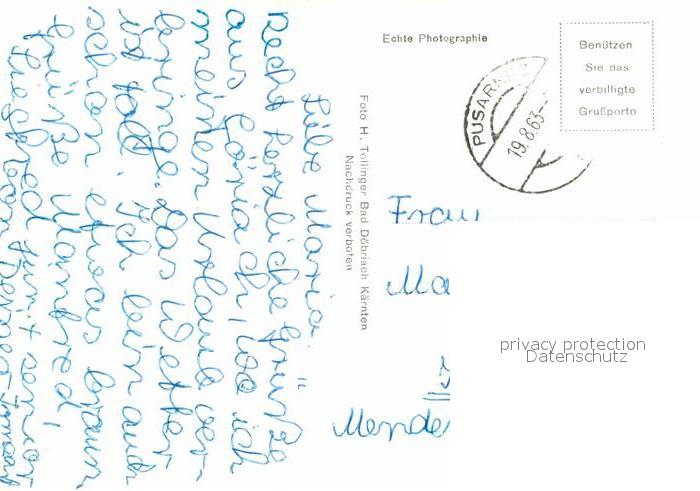 Echte Photographie
Benützen
Sie das
verbilligte
Grußporto
PUSARN
19.8.63-
Foto H. Tollinger Bad Döbriach Kärnten
Nachdruck verboten
Frau
Ma
Mende
privacy protection
Datenschutz
Liebe Maria!
Recht herzliche Grüße
aus ich, wo ich
meinen Urlaub ver-
bringe. Das Wetter
ist toll. Ich bin auch
schon etwas braun
Grüße Manfred,